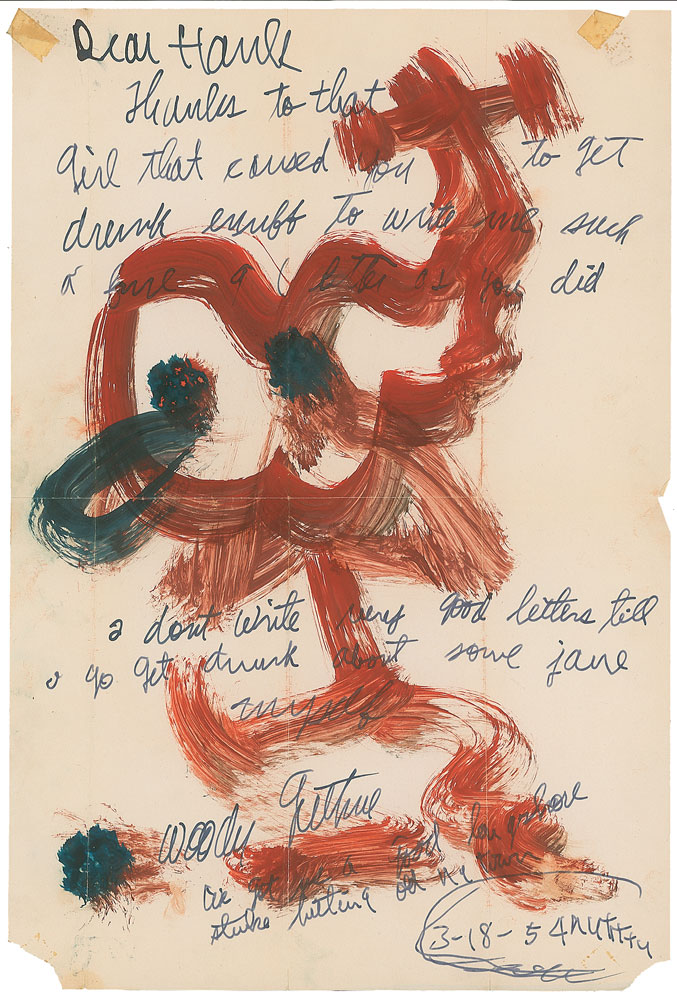 Dear Hank
Thanks to that
girl that caused you to get
drunk enuff to write me such
a fine a letter as you did
I dont write very good letters till
I go get drunk about some jane
myself
Woody Guthrie
Ive got me a good longshore
strike hitting old ny town
3-18-54